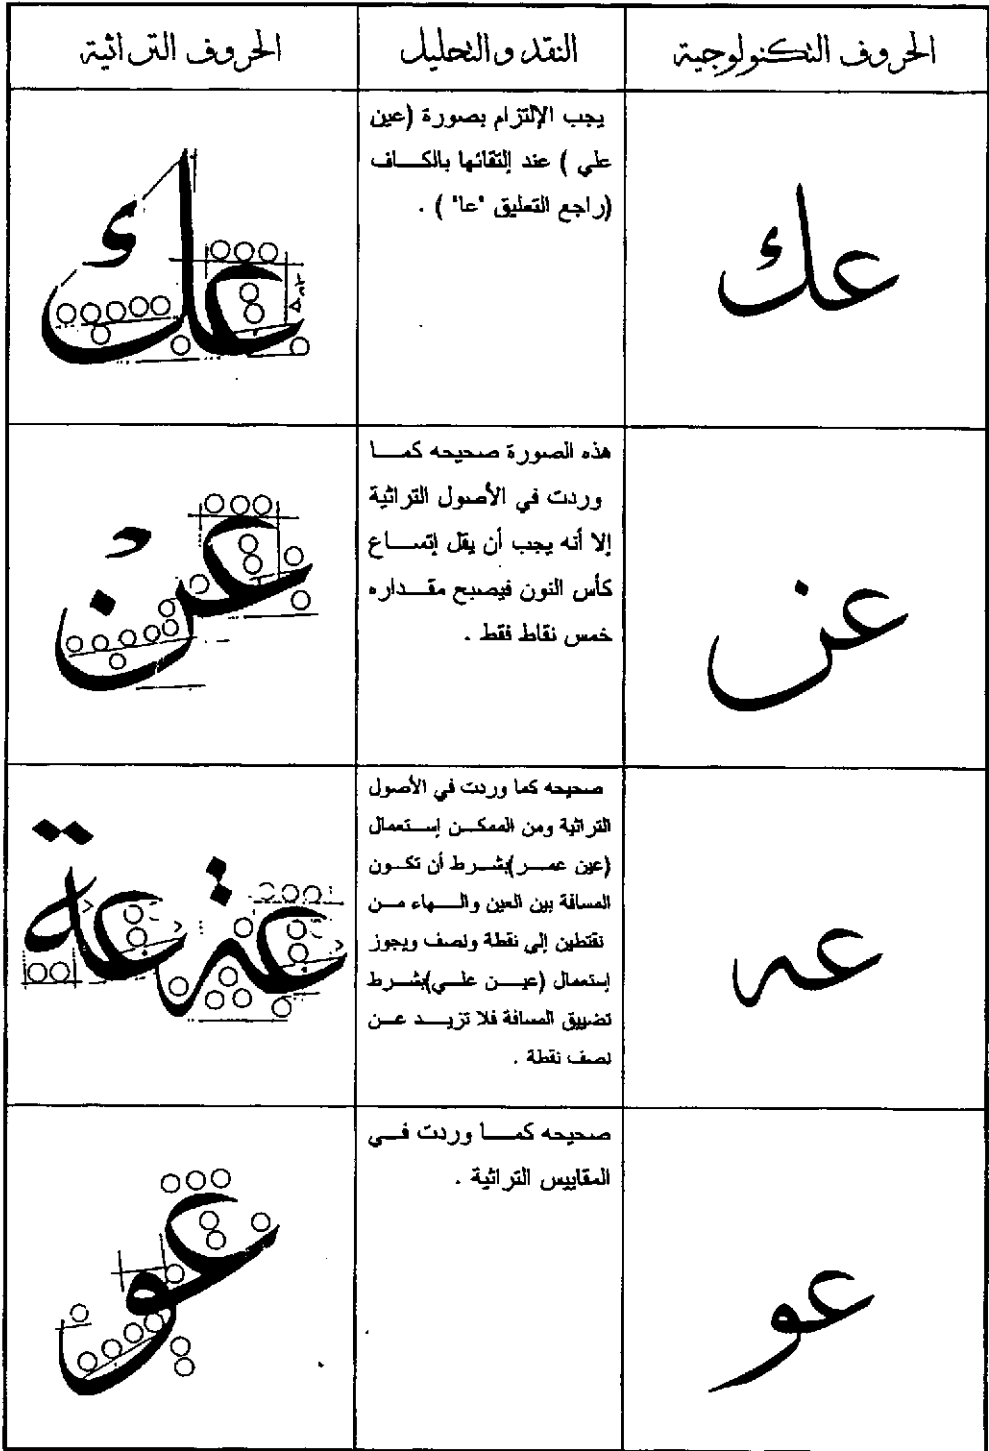 الحروف التكنولوجية
النقد والتحليل
الحروف التراثية
عك
يجب الإلتزام بصورة (عين
علي ) عند إلتقائها بالكـــاف
(راجع التعليق "عا" ) .
عك
عن
هذه الصورة صحيحه كمـــا
وردت في الأصول التراثية
إلا أنه يجب أن يقل إتســـاع
كأس النون فيصبح مقـــداره
خمس نقاط فقط .
عن
عه
صحيحه كما وردت في الأصول
التراثية ومن الممكـــن إستعمال
(عين عمـــر)بشـــرط أن تكـــون
المسافة بين العين والـــهاء مـــن
نقتطين إلي نقطة ونصف ويجوز
إستعمال (عيـــن علـــي)بشـــرط
تضييق المسافة فلا تزيـــد عـــن
نصف نقطة .
عة عة
عو
صحيحه كمـــا وردت فـــي
المقاييس التراثية .
عو